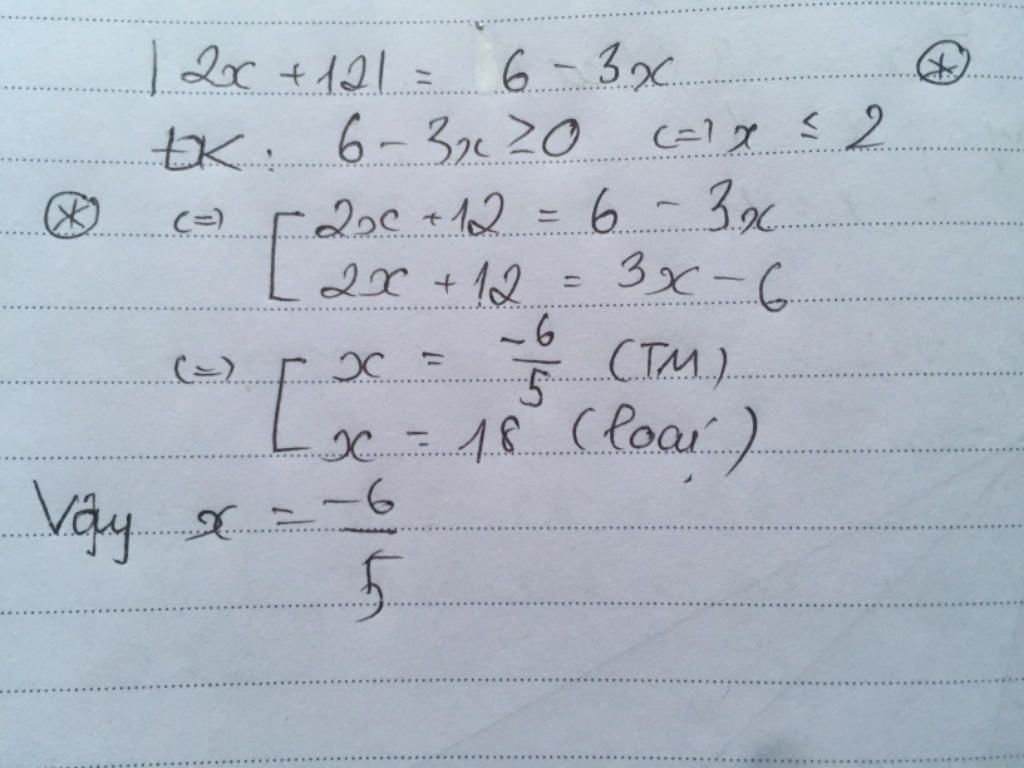 |2x + 12| = 6 - 3x (*)
ĐK: 6 - 3x ≥ 0 <=> x ≤ 2
(*) <=> [ 2x + 12 = 6 - 3x
2x + 12 = 3x - 6
<=> [ x = -6/5 (TM)
x = 18 (loại)
Vậy x = -6/5